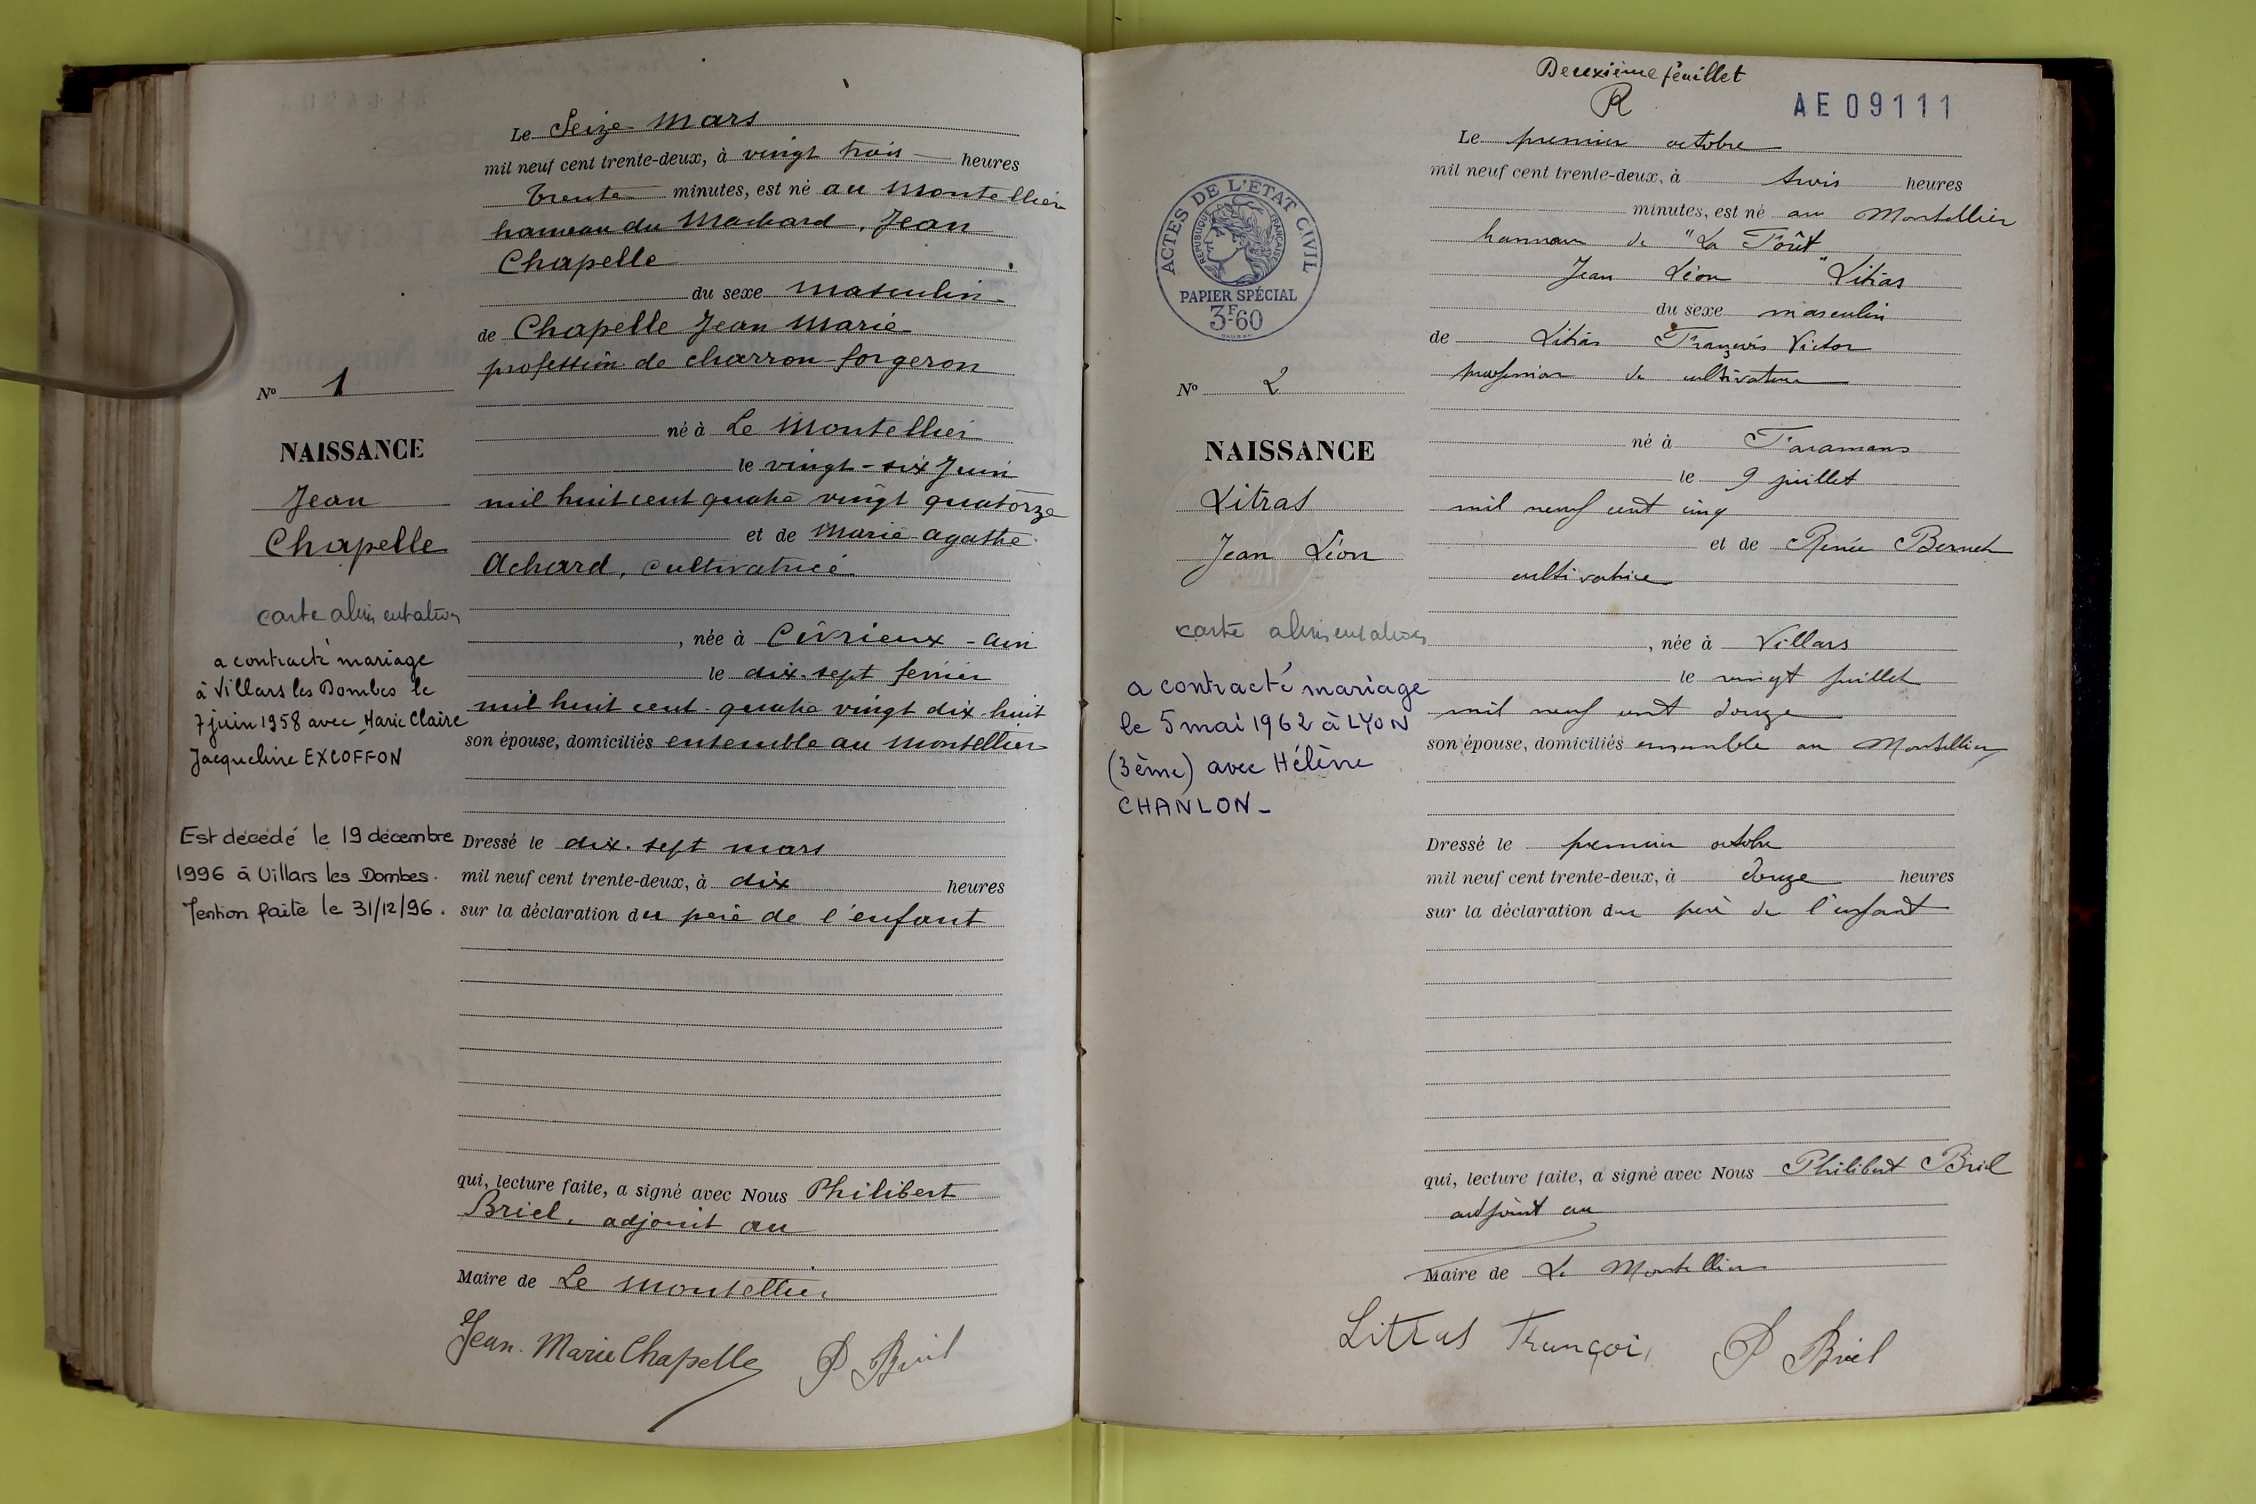 Le Seize Mars
mil neuf cent trente-deux, à vingt trois heures
trente minutes, est né au Montellier
hameau du Machard, Jean
Chapelle
du sexe masculin
de Chapelle Jean Marie
profession de charron-forgeron
No 1
né à Le Montellier
NAISSANCE
le vingt-six Juin
Jean
mil huit cent quatre vingt quatorze
Chapelle
et de Marie Agathe
Achard, cultivatrice
carte alimentation
, née à Civrieux - Ain
a contracté mariage
à Villars les Dombes le
7 juin 1958 avec Marie Claire
Jacqueline EXCOFFON
le dix-sept fevrier
mil huit cent quatre vingt dix huit
son épouse, domiciliés ensemble au Montellier
Est décédé le 19 décembre
1996 à Villars les Dombes.
Mention faite le 31/12/96.
Dressé le dix-sept mars
mil neuf cent trente-deux, à dix heures
sur la déclaration du père de l'enfant
qui, lecture faite, a signé avec Nous Philibert
Briel, adjoint au
Maire de Le Montellier
Jean Marie Chapelle P Briel
Deuxième feuillet
R
AE09111
Le premier octobre
mil neuf cent trente-deux, à trois heures
minutes, est né au Montellier
hameau de "La Forêt"
Jean Léon Litras
du sexe masculin
de Litras François Victor
profession de cultivateur
ACTES DE L'ETAT CIVIL
REPUBLIQUE FRANÇAISE
PAPIER SPÉCIAL
3F60
No 2
né à Faramans
NAISSANCE
le 9 juillet
Litras
mil neuf cent cinq
Jean Léon
et de Renée Bernet
cultivatrice
carte alimentation
, née à Villars
a contracté mariage
le 5 mai 1962 à LYON
(3ème) avec Hélène
CHANLON_
le vingt juillet
mil neuf cent douze
son épouse, domiciliés ensemble au Montellier
Dressé le premier octobre
mil neuf cent trente-deux, à douze heures
sur la déclaration du père de l'enfant
qui, lecture faite, a signé avec Nous Philibert Briel
adjoint au
Maire de Le Montellier
Litras François P Briel